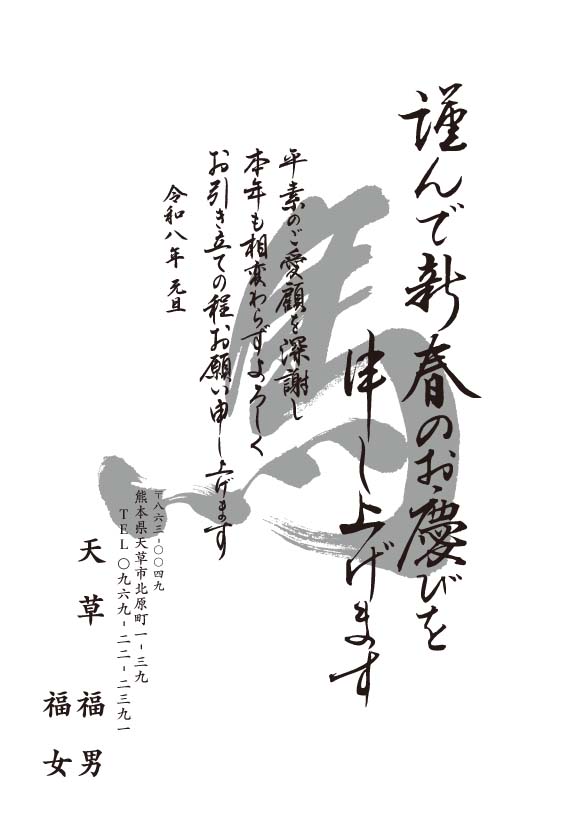 謹んで新春のお慶びを
申し上げます
平素のご愛顧を深謝し
本年も相変わらずよろしく
お引き立ての程お願い申し上げます
令和八年 元旦
馬
〒八六三-〇〇四九
熊本県天草市北原町一-三九
TEL〇九六九-二二-二三九一
天草 福男
福女